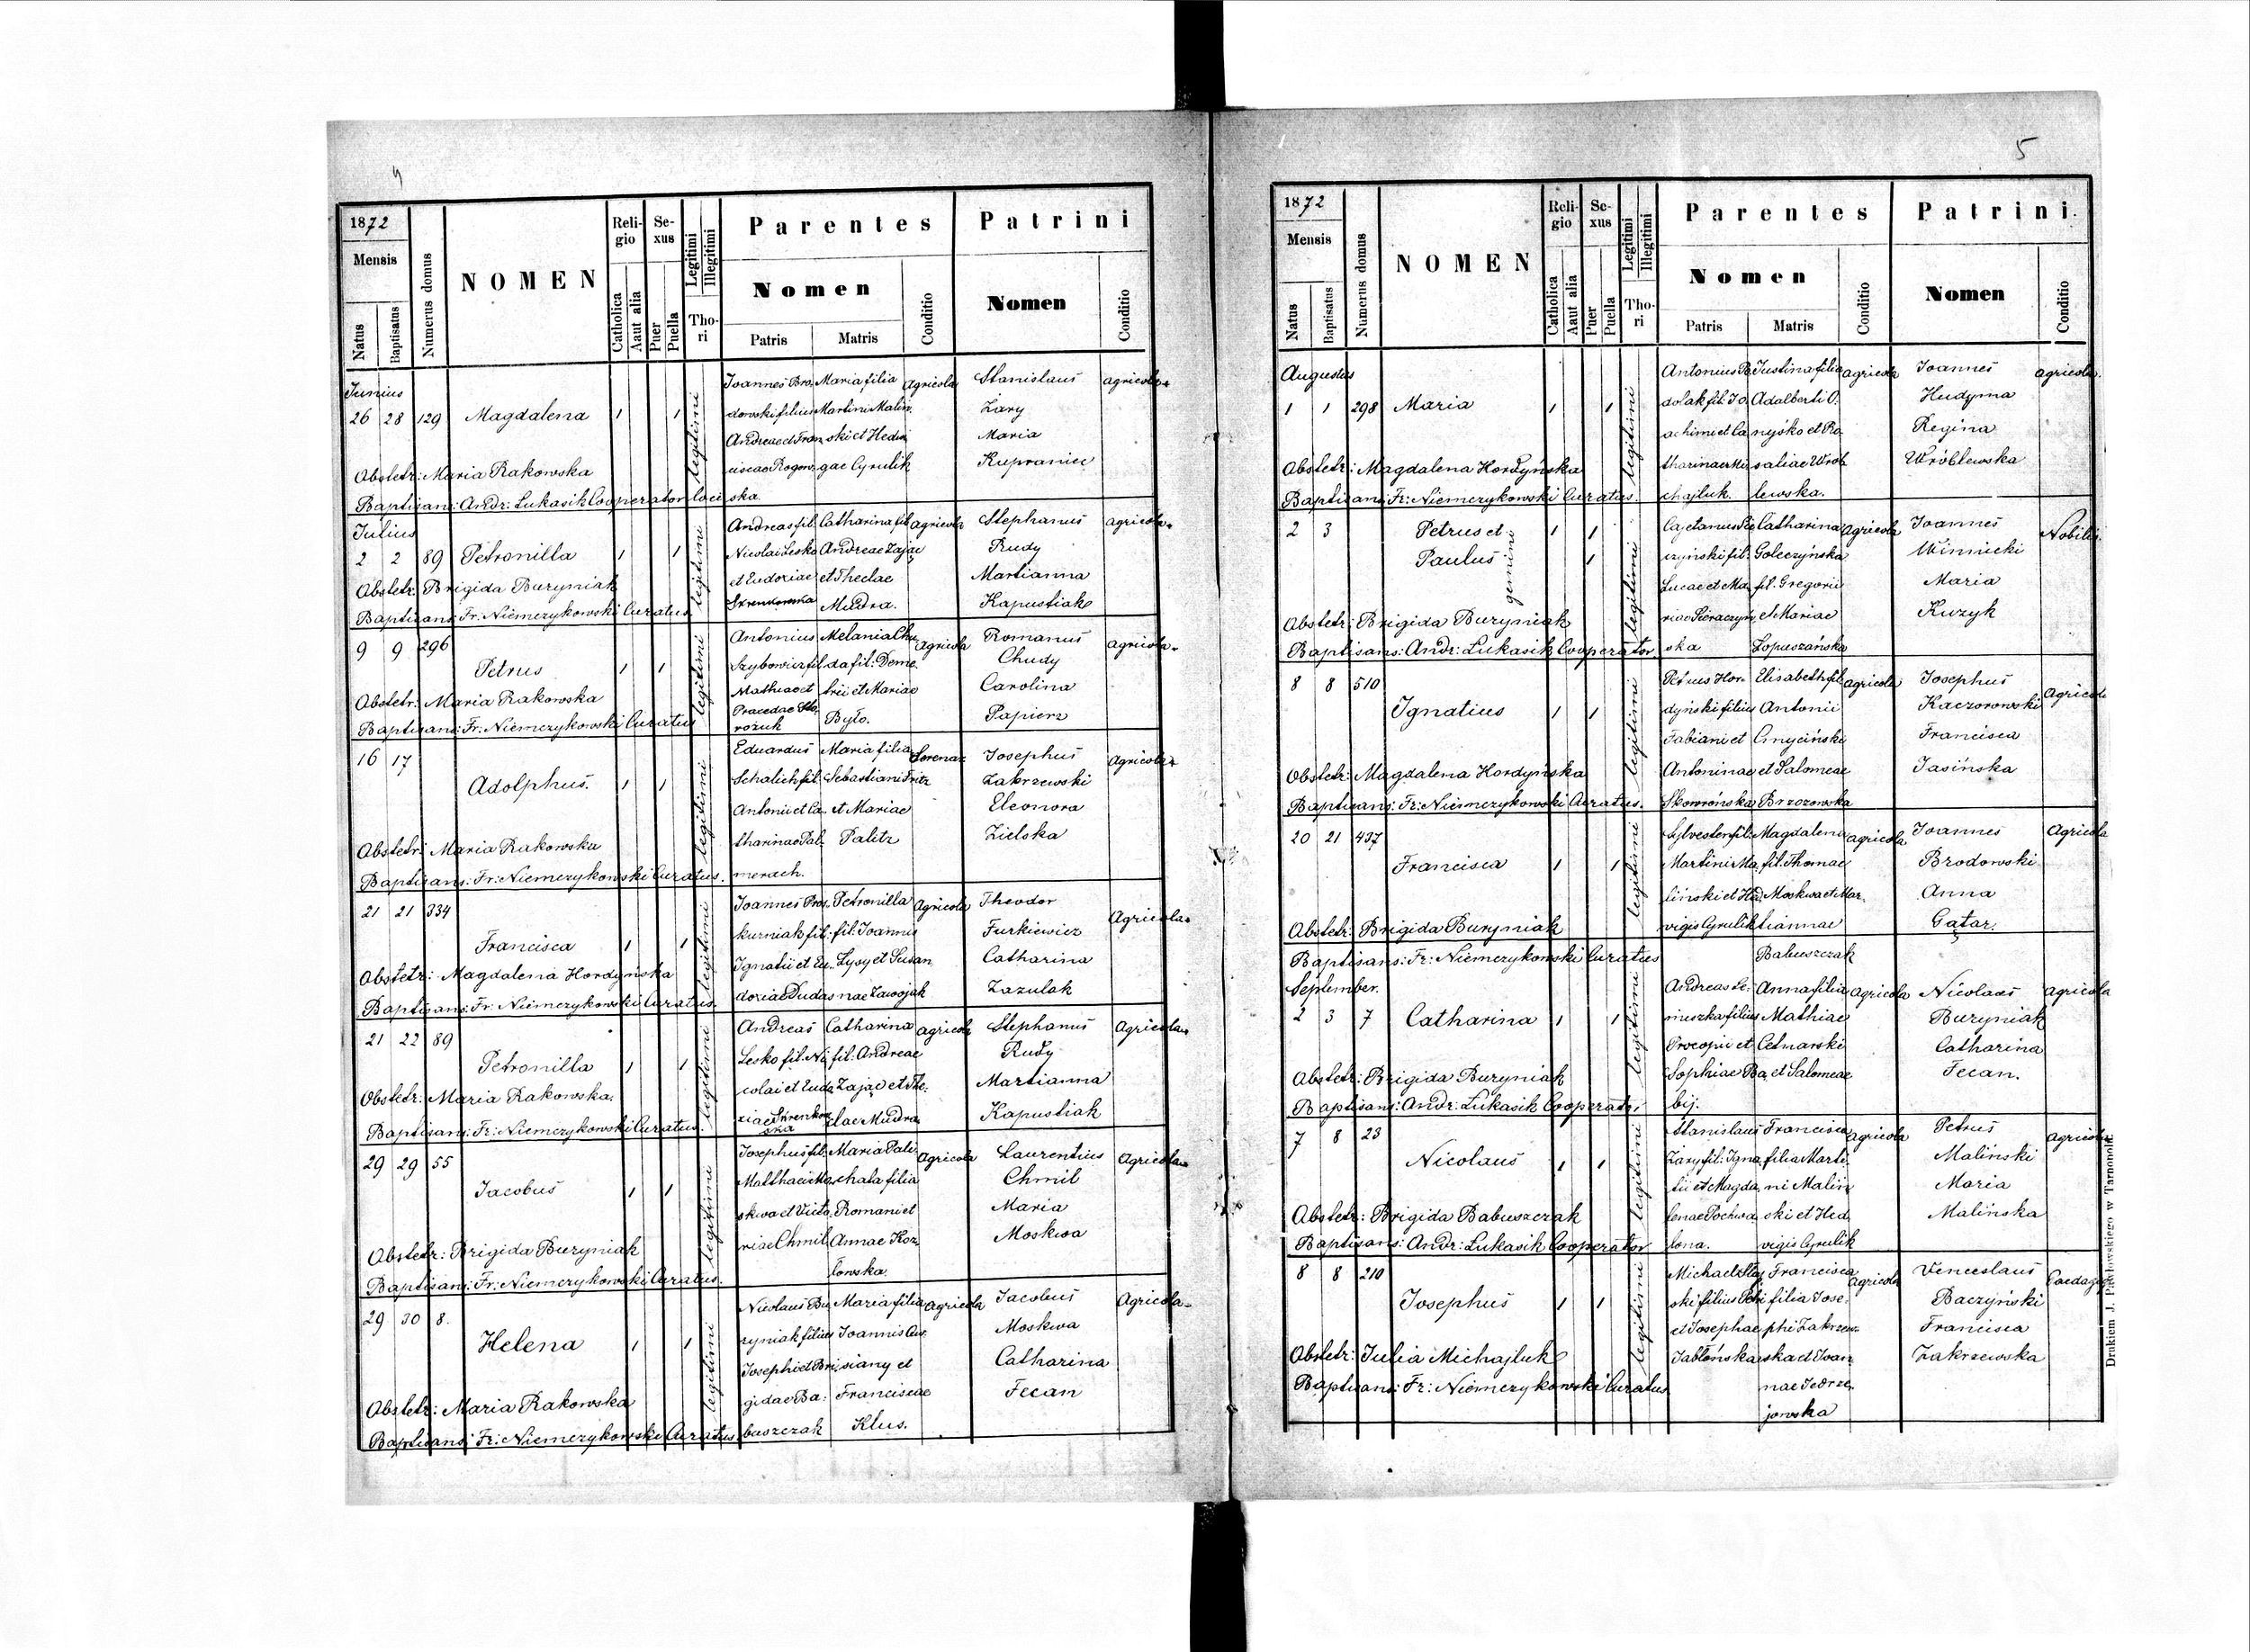 4
1872
Mensis
Natus
Baptisatus
Numerus domus
NOMEN
Religio
Catholica
Aut alia
Sexus
Puer
Puella
Legitimi
Illegitimi
Thori
Parentes
Nomen
Patris
Matris
Conditio
Patrini
Nomen
Conditio
Junius
26 28 129 Magdalena 1 1 legitimi
Joannes Bro- Maria filia agricola Stanislaus agricola
dowski filius Martini Malin- Żary
Andreae et Fran- ski et Hedwi- Maria
ciscae Rogow- gae Cyrulik Kupraniec
Obstetr: Maria Rakowska
Baptisans: Andr: Łukasik Cooperator loci ska.
Julius
2 2 89 Petronilla 1 1 legitimi
Andreas fil. Catharina fil. agricola Stephanus agricola
Nicolai Lesko Andreae Zając Rudy
et Eudoxiae et Theclae Martianna
Mudra. Kapustiak
Obstetr: Brigida Buryniak
Baptisans Fr: Niemczykowski Curatus
9 9 296 Petrus 1 1 legitimi
Antonius Melania Chu- Agricola Romanus agricola
Szybowicz fil. da fil: Deme- Chudy
Mathiae et trii et Mariae Carolina
Praxedae Było. Papierz
Obstetr: Maria Rakowska
Baptisans: Fr: Niemczykowski Curatus
16 17 Adolphus. 1 1 legitimi
Eduardus Maria filia Josephus Agricola
Schalich fil. Sebastiani Fritz Zakrzewski
Antonii et Ca- et Mariae Eleonora
tharinae Pal- Palitz Zielska
merach.
Obstetr: Maria Rakowska
Baptisans: Fr: Niemczykowski Curatus.
21 21 334 Francisca 1 1 legitimi
Joannes Pros- Petronilla Agricola Theodor Agricola
kurniak fil: fil: Joannis Furkiewicz
Ignatii et Eu- Łysy et Susan- Catharina
doxiae Dudas nae Zawojak Zazulak
Obstetr: Magdalena Hordyńska
Baptisans: Fr: Niemczykowski Curatus.
21 22 89 Petronilla 1 1 legitimi
Andreas Catharina agricola Stephanus Agricola
Lesko fil. Ni- fil: Andreae Rudy
colai et Eudo- Zając et The- Martianna
xiae clae Mudra Kapustiak
Obstetr: Maria Rakowska.
Baptisans: Fr: Niemczykowski Curatus.
29 29 55 Jacobus 1 1 legitimi
Josephus fil: Maria Pali- Agricola Laurentius Agricola
Matthaei Mo- chata filia Chmil
skwa et Victo- Romani et Maria
riae Chmil Annae Koz- Moskwa
łowska.
Obstetr: Brigida Buryniak
Baptisans: Fr: Niemczykowski Curatus.
29 30 8. Helena 1 1 legitimi
Nicolaus Bu- Maria filia agricola Jacobus Agricola
ryniak filius Joannis Cu- Moskwa
Josephi et Bri- siany et Catharina
gidae Ba- Franciscae Fecan
buszczak Klus.
Obstetr: Maria Rakowska
Baptisans: Fr: Niemczykowski Curatus.
5
1872
Mensis
Natus
Baptisatus
Numerus domus
NOMEN
Religio
Catholica
Aut alia
Sexus
Puer
Puella
Legitimi
Illegitimi
Thori
Parentes
Nomen
Patris
Matris
Conditio
Patrini.
Nomen
Conditio
Augustus
1 1 298 Maria 1 1 legitimi
Antonius Po- Justina filia agricola Joannes agricola.
dolak fil: Jo- Adalberti O- Hudyma
achimi et Ca- nyśko et Ro- Regina
tharinae Mi- saliae Wrob- Wróblewska
chajluk. lewska.
Obstetr: Magdalena Hordyńska
Baptisans: Fr: Niemczykowski Curatus.
2 3 Petrus et 1 1 legitimi
Paulus 1 gemini
Cajetanus Sie- Catharina Agricola Joannes Nobilis.
Goleczyńska Winnicki
Lucae et Ma- fil. Gregorii Maria
et Mariae Kuzyk
ska Łopuszańska
Obstetr: Brigida Buryniak
Baptisans: Andr: Łukasik Cooperator.
8 8 510 Ignatius 1 1 legitimi
Petrus Hor- Elisabeth fil. agricola Josephus Agricola
dyński filius Antonii Kaczorowski
Fabiani et Cmyciński Francisca
Antoninae et Salomeae Jasińska
Skowrońska Brzozowska
Obstetr: Magdalena Hordyńska
Baptisans: Fr: Niemczykowski Curatus.
20 21 437 Francisca 1 1 legitimi
Sylvester fil: Magdalena agricola Joannes Agricola
Martini Ma- fil. Thomae Brodowski
liński et Hed- Moskwa et Mar- Anna
vigis Cyrulik tiannae Gatar.
Babuszczak
Obstetr: Brigida Buryniak
Baptisans: Fr: Niemczykowski Curatus
September.
2 3 7 Catharina 1 1 legitimi
Andreas Se- Anna filia Agricola Nicolaus agricola
meszka filius Mathiae Buryniak
Procopii et Cetnarski Catharina
Sophiae Ba- et Salomeae Fecan.
bij.
Obstetr: Brigida Buryniak
Baptisans: Andr: Łukasik Cooperator
7 8 23 Nicolaus 1 1 legitimi
Stanislaus Francisca agricola Petrus agricola
Żary fil: Igna- filia Marti- Malinski
tii et Magda- ni Malin- Maria
lenae Pochwa- ski et Hed- Malińska
łona. vigis Cyrulik
Obstetr: Brigida Babuszczak
Baptisans: Andr: Łukasik Cooperator
8 8 210 Josephus 1 1 legitimi
Michael Francisca agricola Venceslaus Paedagog
ski filius Petri filia Jose- Baczyński
et Josephae phi Zakrzew- Francisca
Jabłońska ska et Joan- Zakrzewska
nae Jedrze-
jowska
Obstetr: Julia Michajluk
Baptisans: Fr: Niemczykowski Curatus
Drukiem J. Pawłowskiego w Tarnopolu.